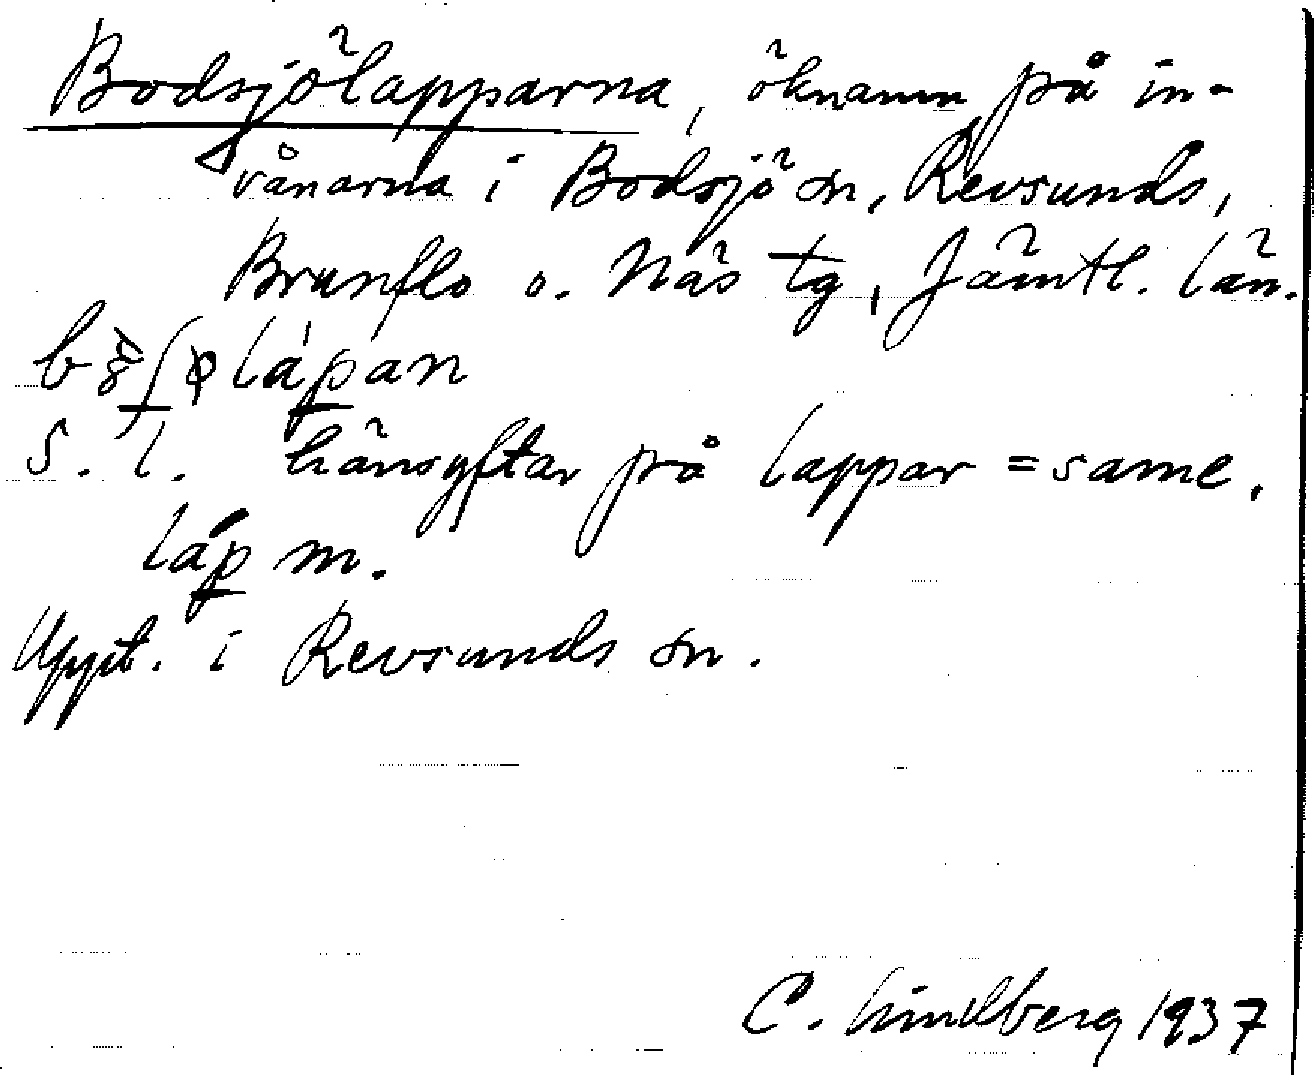 Bodsjölapparna, öknamn på in-
vånarna i Bodsjö sn, Revsunds,
Brunflo o. Näs tg, Jämtl. län.
lápan
S. l. hänsyftar på lappar = same,
láp m.
Uppt. i Revsunds sn.
C. Lindberg 1937